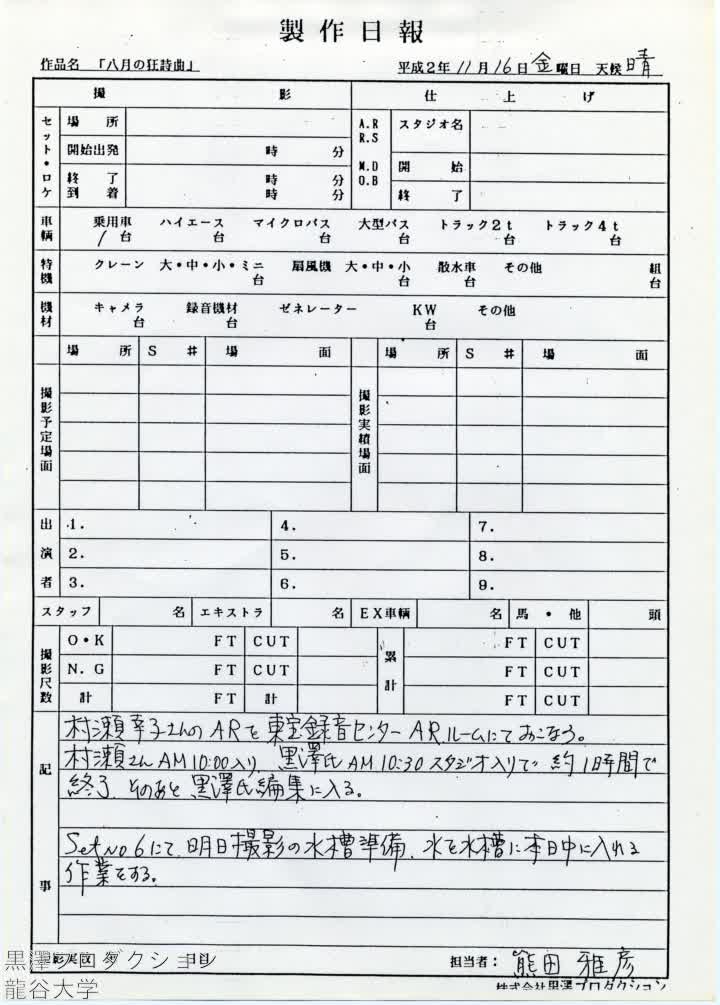 製作日報
作品名 「八月の狂詩曲」 平成2年 11月 16日 金曜日 天候 晴
撮 影 仕 上 げ
セット・ロケ 場 所 A.R R.S M.D O.B スタジオ名
開始出発 時 分 開 始
終 了 時 分 終 了
到 着 時 分
車輌 乗用車 ハイエース マイクロバス 大型バス トラック2t トラック4t
1台 台 台 台 台 台
特機 クレーン 大・中・小・ミニ 扇風機 大・中・小 散水車 その他 組
台 台 台 台
機材 キャメラ 録音機材 ゼネレーター KW その他
台 台 台
場 所 S # 場 面 場 所 S # 場 面
撮影予定場面 撮影実績場面
出演者 1. 4. 7.
2. 5. 8.
3. 6. 9.
スタッフ 名 エキストラ 名 EX車輌 名 馬・他 頭
撮影尺数 O・K FT CUT 累計 FT CUT
N.G FT CUT FT CUT
計 FT 計 FT CUT
記事
村瀬幸子さんのARを東宝録音センターARルームにておこなう。
村瀬さんAM10:00入り、黒澤氏AM10:30スタジオ入りで 約1時間で
終了、そのあと黒澤氏編集に入る。
Set No 6にて、明日撮影の水槽準備、水を水槽に本日中に入れる
作業をする。
担当者： 熊田雅彦
株式会社黒澤プロダクション
黒澤プロダクション
龍谷大学